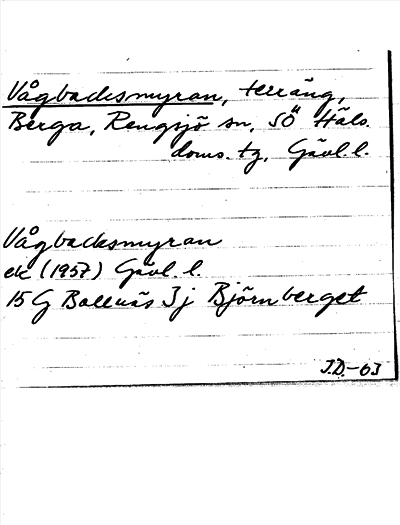 Vågbacksmyran, terräng,
Berga, Rengsjö sn, SÖ Häls.
doms. tg, Gävl. l.
Vågbacksmyran
ek (1957) Gävl. l.
15 G Bollnäs 3j Björnberget
J.D.-63